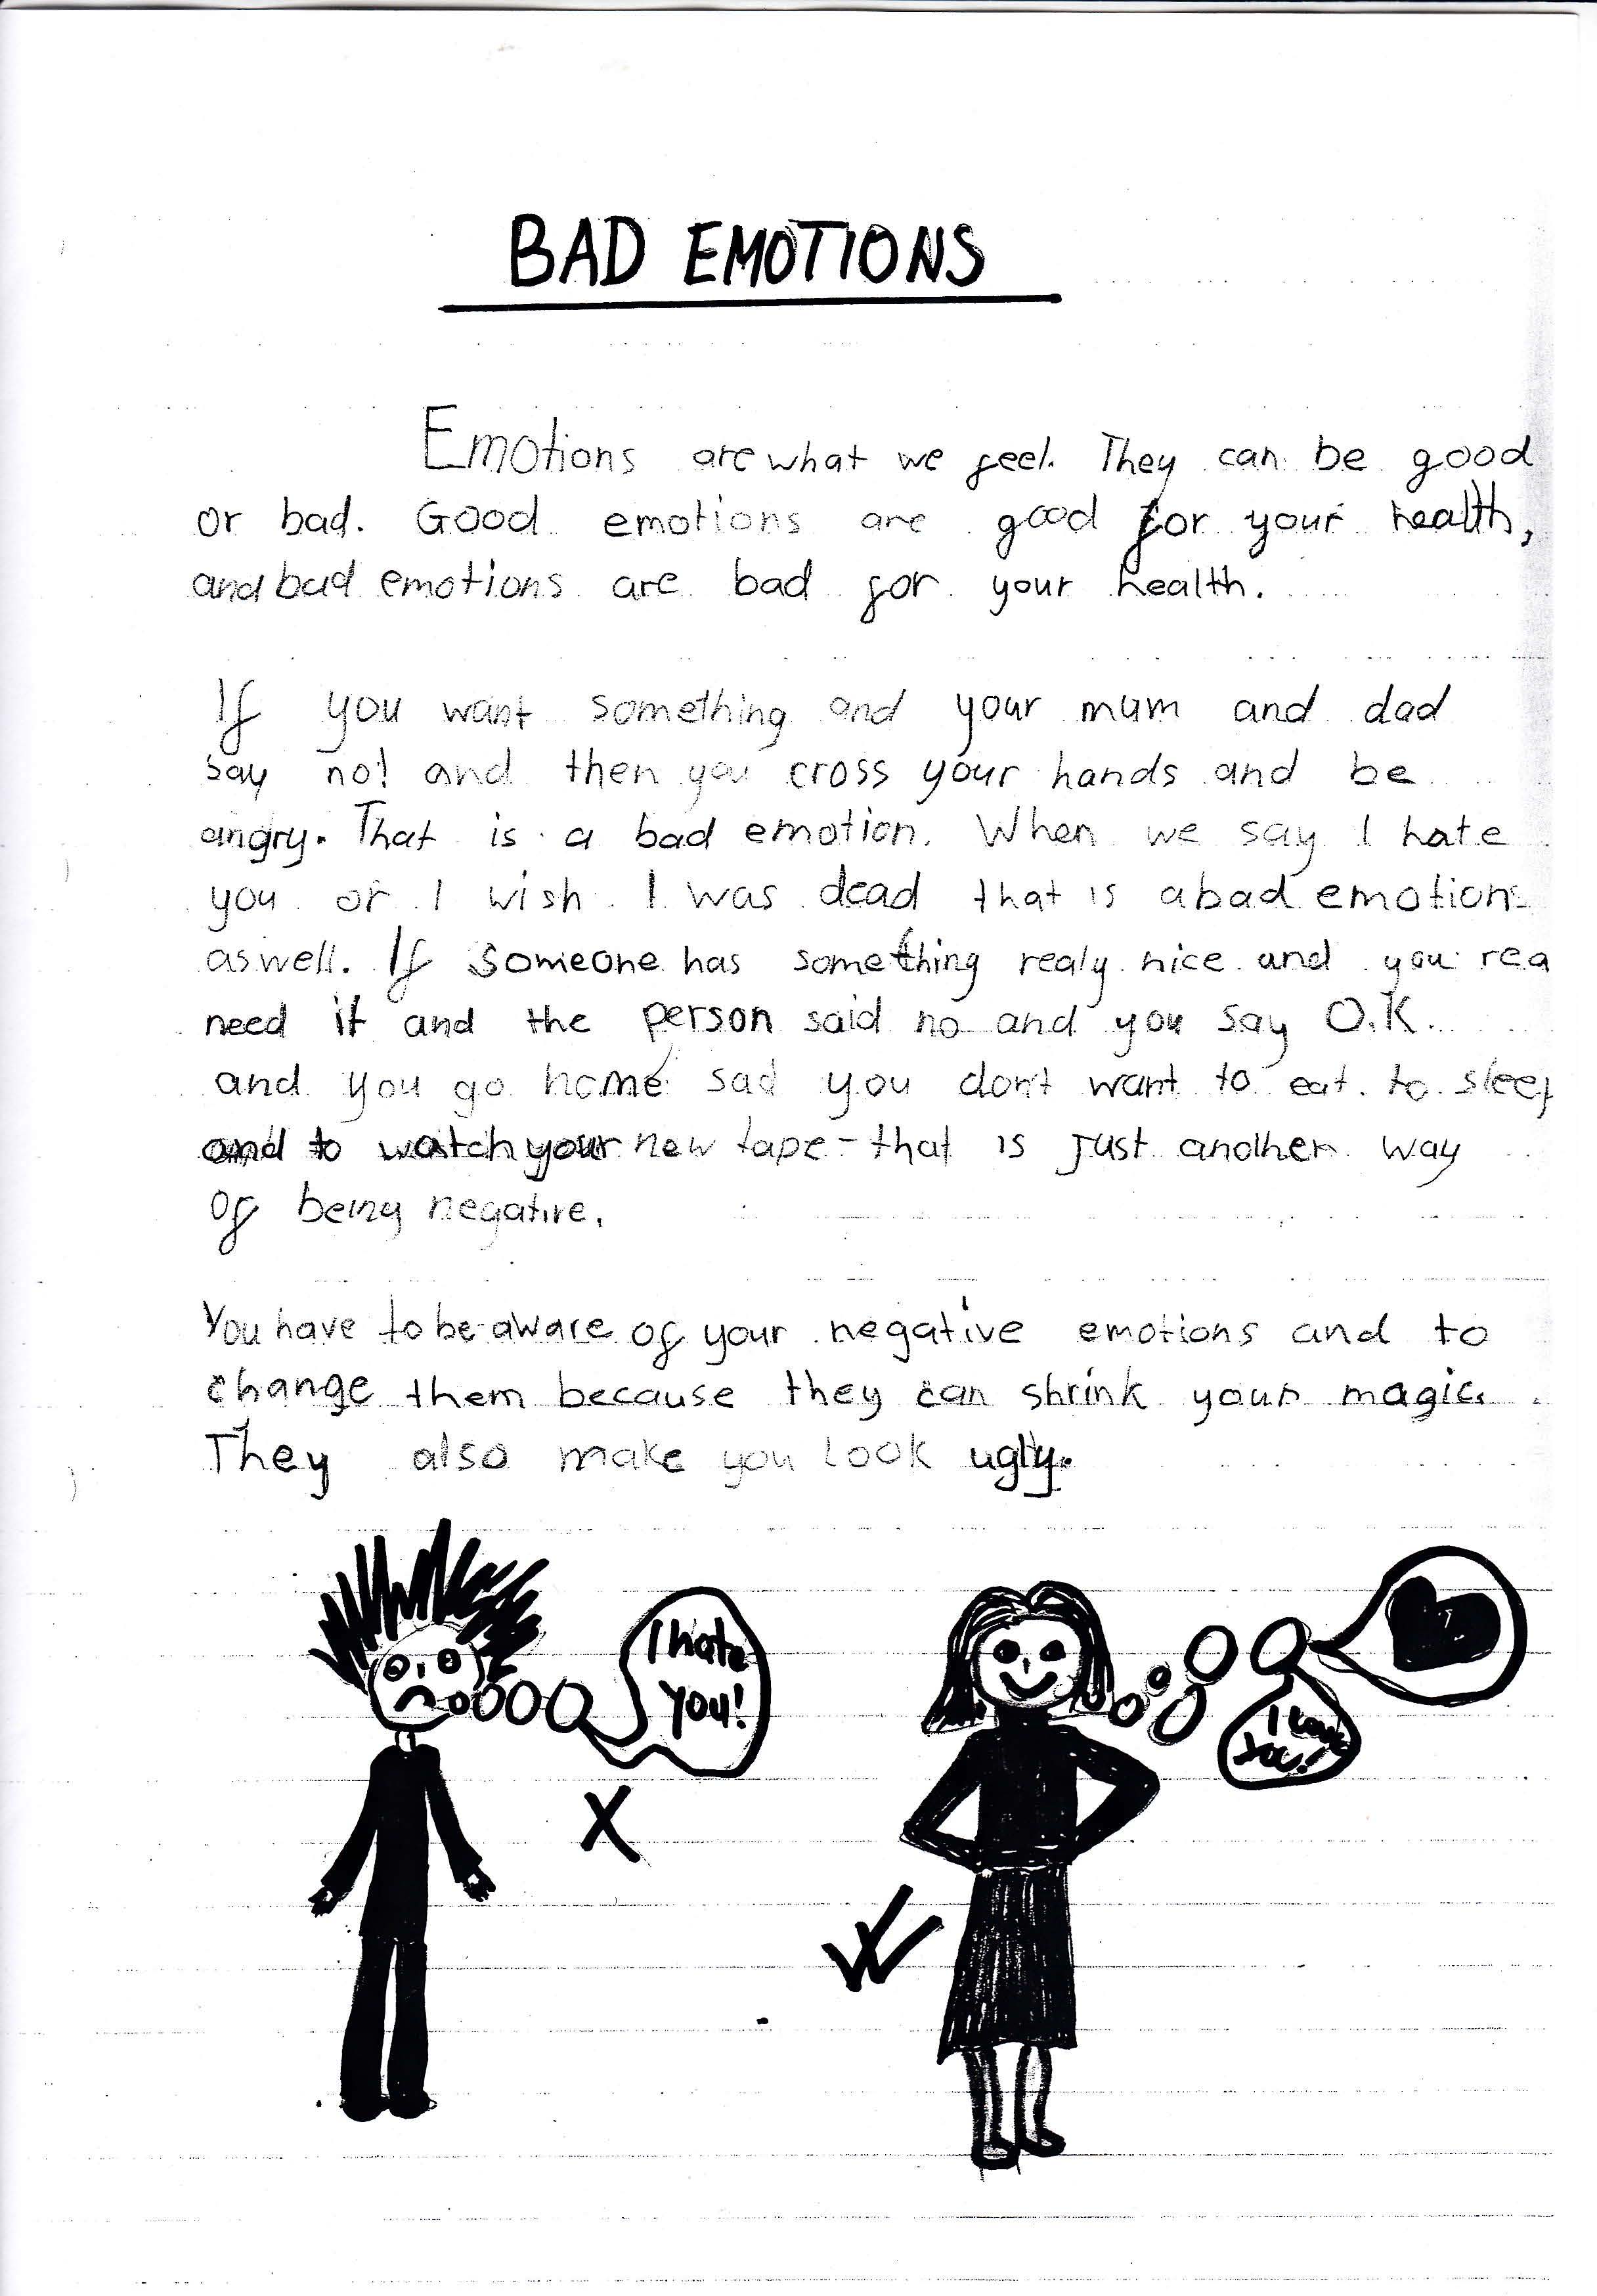 BAD EMOTIONS
Emotions are what we feel. They can be good
or bad. Good emotions are good for your health,
and bad emotions are bad for your health.
If you want something and your mum and dad
say no! and then you cross your hands and be
angry. That is a bad emotion. When we say I hate
you or I wish I was dead that is a bad emotion
aswell. If someone has something realy nice and you rea
need it and the person said no and you say O.K.
and you go home sad you don't want to eat. to sleep
and to watch your new tape - that is just another way
of being negative.
You have to be aware of your negative emotions and to
change them because they can shrink your magic.
They also make you look ugly.
I hate
you!
I love
you!